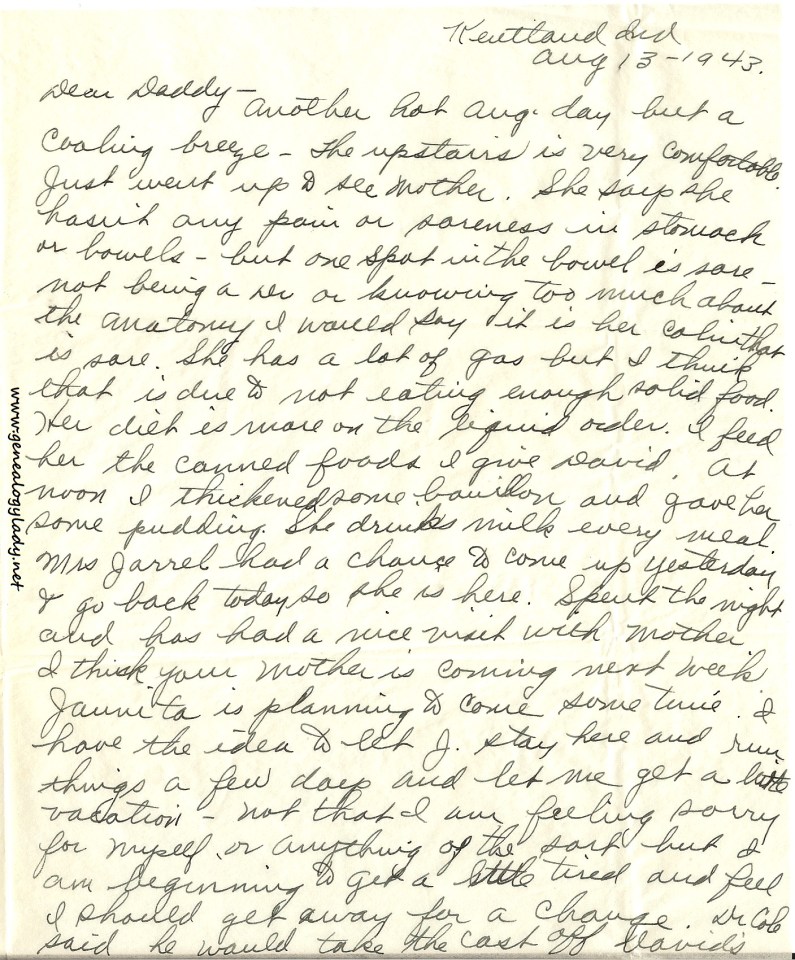 Kentland Ind
Aug 13-1943.
Dear Daddy-
Another hot Aug. day but a
cooling breeze - The upstairs is very comfortable.
Just went up to see Mother. She says she
hasn't any pain or soreness in stomach
or bowels - but one spot in the bowel is sore -
not being a Dr or knowing too much about
the anatomy I would say it is her colin that
is sore. She has a lot of gas but I think
that is due to not eating enough solid food.
Her diet is more on the liquid order. I feed
her the canned foods I give David. At
noon I thickened some bouillon and gave her
some pudding. She drinks milk every meal.
Mrs Jarrel had a chance to come up yesterday
& go back today so she is here. Spent the night
and has had a nice visit with Mother
I think your Mother is coming next week
Jaunita is planning to come some time. I
have the idea to let J. stay here and run
things a few days and let me get a little
vacation - not that I am feeling sorry
for myself or anything of the sort but I
am beginning to get a little tired and feel
I should get away for a change. Dr Cole
said he would take the cast off David's
www.genealogylady.net